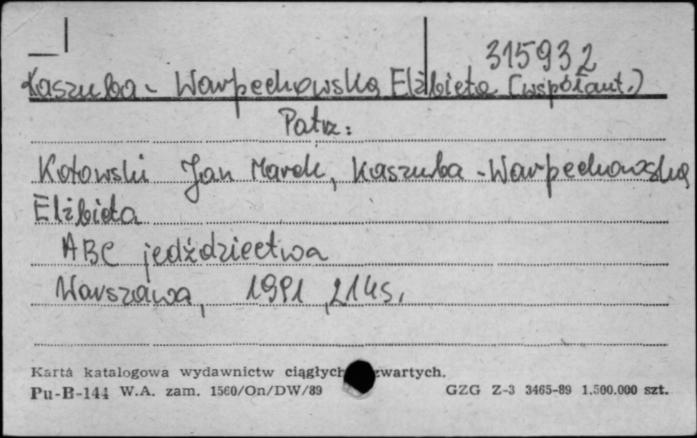 315932
Kaszuba - Warpechowska Elżbieta (współaut.)
Patrz:
Kotowski Jan Marek, Kaszuba - Warpechowska
Elżbieta
ABC jeździectwa
Warszawa, 1991, 214 s.
Karta katalogowa wydawnictw ciągłych zwartych.
Pu-B-144 W.A. zam. 1560/On/DW/89 GZG Z-3 3465-89 1.500.000 szt.